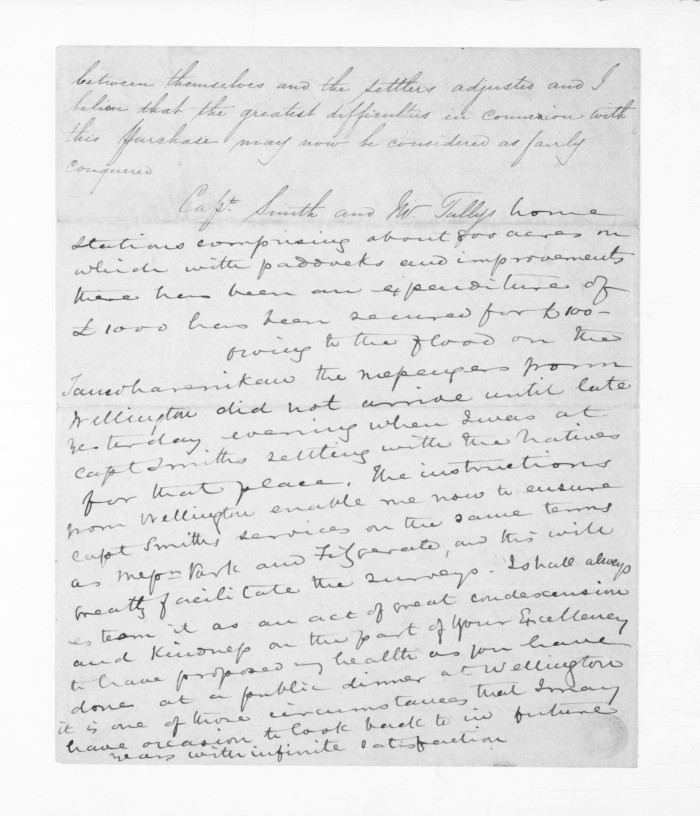 between themselves and the settlers adjusted and I
believe that the greatest difficulties in connexion with
this purchase may now be considered as fairly
conquered
Capt. Smith and Mr. Tullys home
stations comprising about 800 acres on
which with paddocks and improvements
there has been an expenditure of
£1000 has been secured for £100-
owing to the flood on the
Tauwharenikau the messengers from
Wellington did not arrive until late
yesterday evening when I was at
Capt Smiths settling with the Natives
for that place. The instructions
from Wellington enable me now to ensure
Capt Smiths services on the same terms
as Messrs Park and Fitzgerald, and this will
greatly facilitate the surveys. I shall always
esteem it as an act of great condescension
and kindness on the part of your Excellency
to have proposed my health as you have
done at a public dinner at Wellington
it is one of those circumstances that I may
have occasion to look back to in future
years with infinite satisfaction